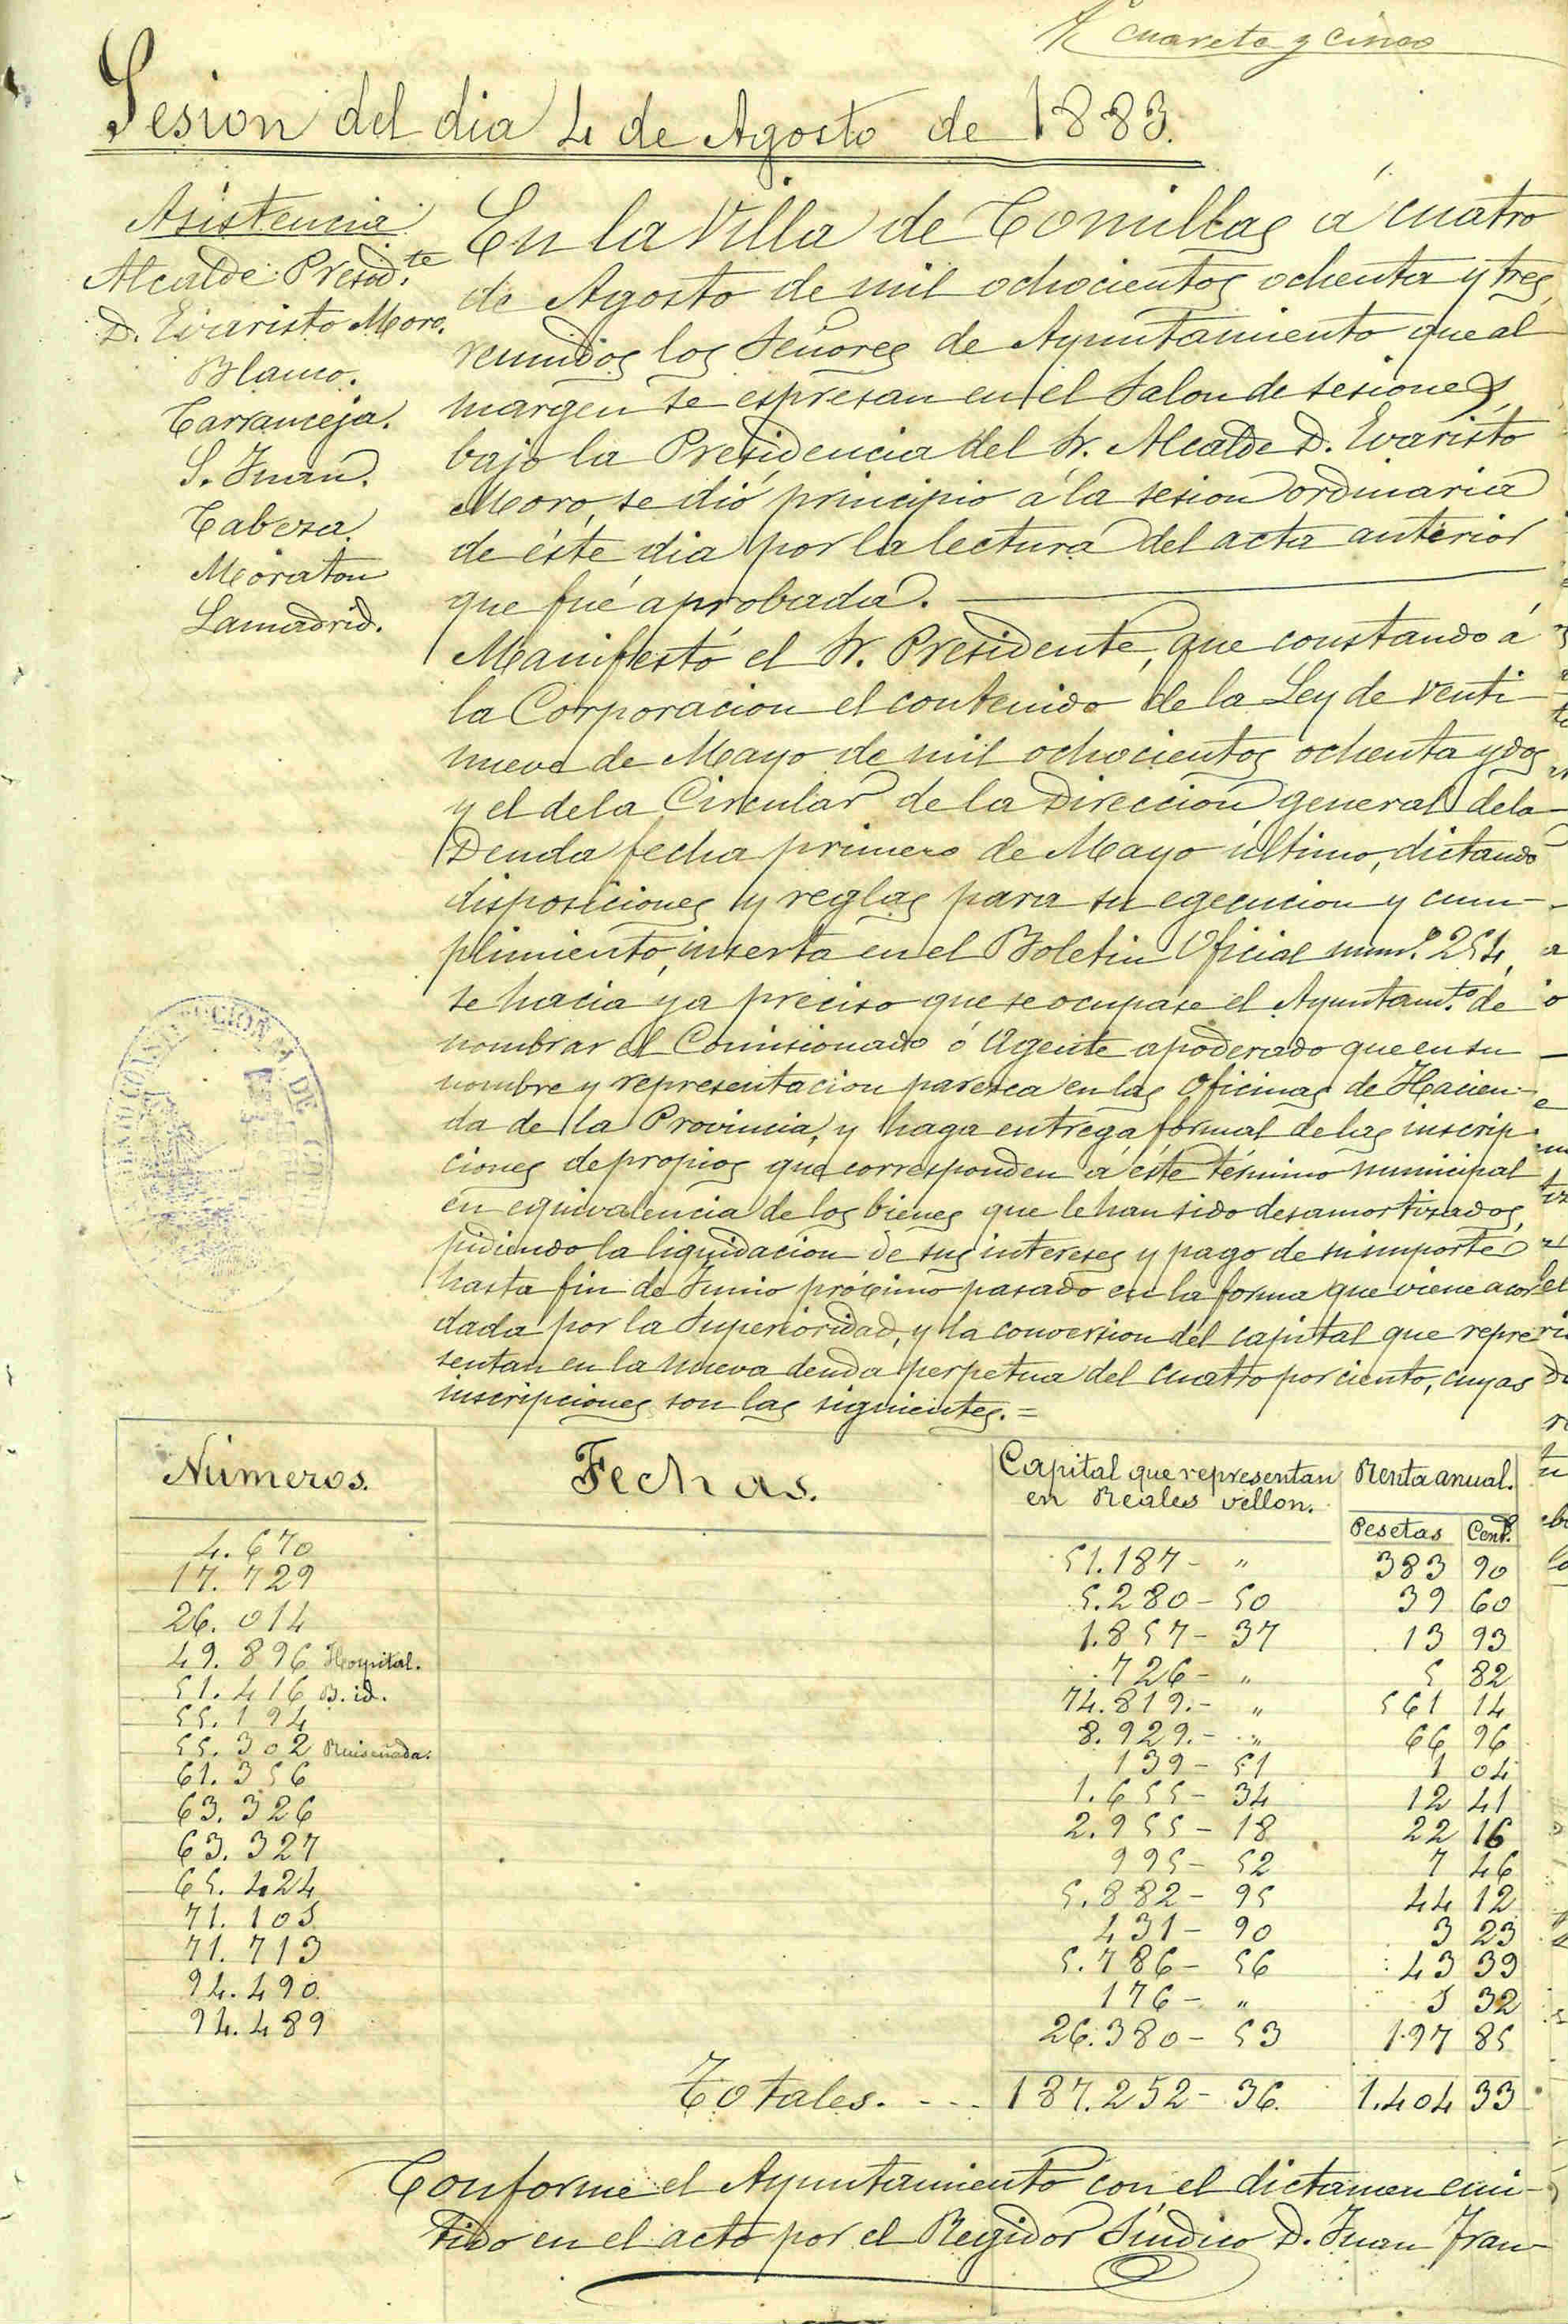 cuareta y cinco
Sesion del dia 4 de Agosto de 1883.
Asistencia
Alcalde Presid.te
D. Evaristo Moro.
Blanco.
Carranceja.
S. Juan.
Cabeza.
Moraton
Lamadrid.
En la Villa de Comillas á cuatro
de Agosto de mil ochocientos ochenta y tres,
reunidos los Señores de Ayuntamiento que al
margen se espresan en el Salon de sesiones,
bajo la Presidencia del Sr. Alcalde D. Evaristo
Moro, se dió principio á la sesion ordinaria
de éste dia por la lectura del acta anterior
que fué aprobada.
Manifestó el Sr. Presidente, que constando á
la Corporacion el contenido de la Ley de venti
nueve de Mayo de mil ochocientos ochenta y dos
y el de la Circular de la Direccion general de la
Deuda fecha primero de Mayo último, dictando
disposiciones y reglas para su egecucion y cum-
plimiento, inserta en el Boletin Oficial num.º 254,
se hacia ya preciso que se ocupase el Ayuntam.to de
nombrar el Comisionado ó Agente apoderado que en su
nombre y representacion parezca en las Oficinas de Hacien-
da de la Provincia, y haga entrega formal de las inscrip-
ciones de propios que corresponden á éste término municipal
en equivalencia de los bienes que le han sido desamortizados,
pidiendo la liquidacion de sus intereses y pago de su importe
hasta fin de Junio próximo pasado en la forma que viene acor
dada por la Superioridad, y la conversion del capital que repre
sentan en la nueva deuda perpetua del cuatro por ciento, cuyas
inscripciones son las siguientes. =
Números. Fechas. Capital que representan en Reales vellon. Renta anual.
Pesetas Cent.s
4.670 51.187 - " 383 90
17.729 5.280 - 50 39 60
26.014 1.857 - 37 13 93
49.896 Hospital. 726 - " 5 82
51.416 B. id. 74.819. - " 561 14
55.194 8.929. - " 66 96
55.302 Ruiseñada. 139 - 51 1 04
61.356 1.655 - 34 12 41
63.326 2.955 - 18 22 16
63.327 995 - 52 7 46
65.424 5.882 - 95 44 12
71.105 431 - 90 3 23
71.713 5.786 - 56 43 39
94.490 176 - " 5 32
94.489 26.380 - 53 197 85
Totales. - - - 187.252 - 36. 1.404 33
Conforme el Ayuntamiento con el dictamen emi-
tido en el acto por el Regidor Síndico D. Juan Fran-